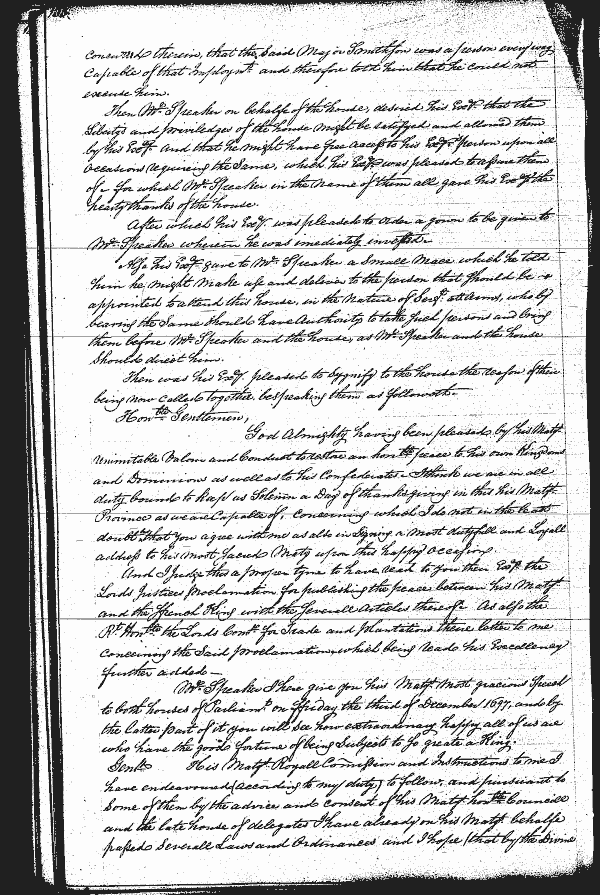 conceived therein, that the Said Major Smithson was a person every way
Capable of that Imploymt. and therefore told him that he could not
excuse him.
Then Mr. Speaker on behalfe of the house, desired his Exy. that the
Libertys and priviledges of the house might be ratifyed and allowed them
by his Exy. and that he might have free access to his Exys. person upon all
occasions requireing the Same, which his Exy. was pleased to assure them
of - for which Mr. Speaker in the name of them all gave his Exy. the
hearty thanks of the house.
After which his Exy. was pleased to order a gown to be given to
Mr. Speaker wherein he was imediately invested.
Also his Exy. gave to Mr. Speaker a Small Mace which he told
him he might make use and deliver to the person that should be
appointed to attend this house, in the nature of Serjt. att Arms, who by
bearing the Same should have Authority to take such persons and bring
them before Mr. Speaker and the house, as Mr. Speaker and the house
Should direct him.
Then was his Exy. pleased to Sygnify to the house the reason of their
being now called together, bespeaking them as followeth -
Honble. Gentlemen,
God Almighty having been pleased by his Matys.
Unimitable Valour and Conduct to restore an honble. peace to his own Kingdoms
and Dominions as well as to his Confederates - I think we are in all
duty bound to keep as Solemn a Day of thanksgiving in this his Matys.
Province as we are Capable of, Concerning which I do not in the least
doubt that you agree with me as also in Signing a most dutyfull and Loyall
address to his most Sacred Maty upon this happy Occasion.
And I Judge this a proper tyme to have read to you their Exys. the
Lords Justices Proclamation for publishing the peace between his Maty.
and the ffrench King with the Severall Articles thereof - As also the
Rt. Honble. the Lords Comrs. for Trade and Plantations their letter to me
concerning the Said proclamation, which being read his Excellency
further added -
Mr. Speaker I here give you his Matys. Most gracious Speech
to both houses of Parliamt. on ffriday the third of December 1697, and by
the latter part of it you will see how extraordinary happy all of us are
who have the good fortune of being Subjects to So greate a King.
Gents. His Matys. Royall Comission and Instructions to me I
have endeavoured (according to my duty) to follow, and pursuant to
Some of them by the advice and consent of his Matys. honble. Councill
and the late house of delegates I have already on his Matys. behalfe
passed Severall Laws and Ordinances and I hope (that by the Divine